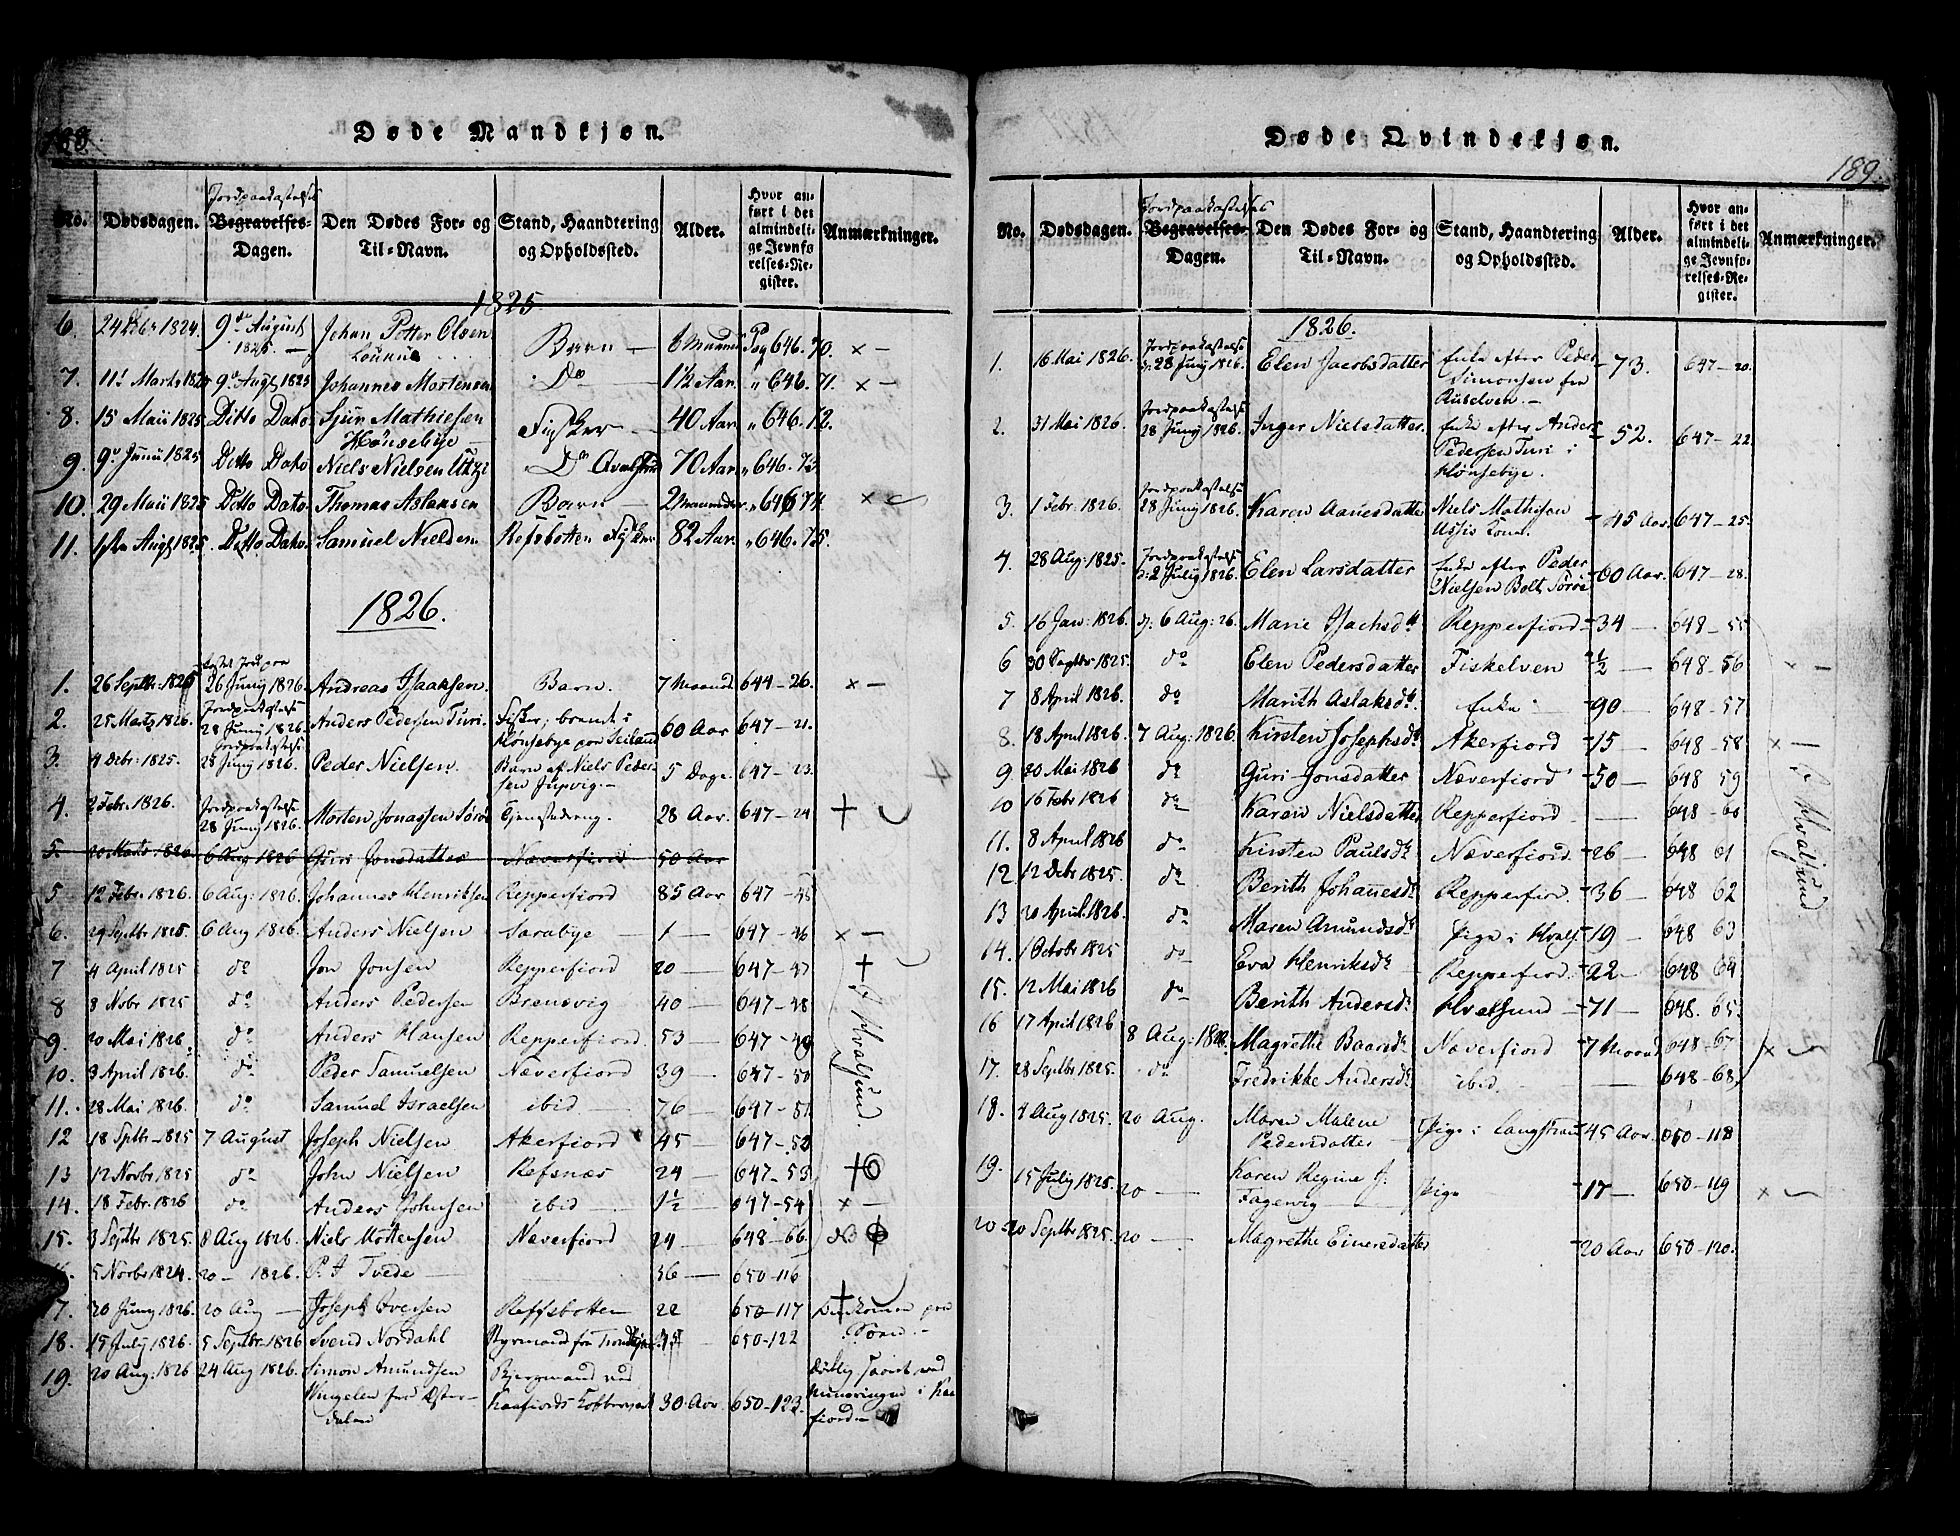 188.
Døde Mandkjøn.
No. Dødsdagen. Jordpaakastelses Begravelses-Dagen. Den Dødes For- og Til-Navn. Stand, Haandtering og Opholdssted. Alder. Hvor anført i det almindelige Jevnførelses-Register. Anmærkninger.
1825
6. 24 1824. 9de August 1825. Johan Petter Olsen Barn 6 Pag 646. 70. × —
7. 11 Marts 9de Augt 1825 Johannes Mortensen Do 1½ Aar. " 646. 71. × —
8. 15 Maii 1825 Ditto Dato Sjur Mathiesen Hønsebye Fisker 40 Aar " 646. 72.
9. 9de Junii 1825 Ditto Dato Niels Nielsen Do 70 Aar " 646. 73
10. 29 Maii 1825 Ditto Dato Thomas Aslaksen Barn 2 Maaneder " 646 74 ×
11. 1ste Augt 1825 Ditto Dato Samuel Nielsen Refsbotten Fisker 82 Aar. " 646. 75.
1826.
1. 26 Septbr. 1825 26 Juny 1826. Andreas Isaksen. Barn. 7 Maaned 644 – 26. × —
2. 25 Marts 1826. Jordpaakastelse 28 Juny 1826. Anders Pedersen Turi. Fisker, Hønsebye paa Seiland 60 Aar 647 – 21.
3. 4 Decbr: 1825. Jordpaakastelse 25 Juny 1826. Peder Nielsen. Barn af Niels Pedersen 5 Dage. 647 – 23.
4. 2 Febr. 1826. Jordpaakastelse 28 Juny 1826. Morten Jonassen Sørøe 28 Aar. 647 – 24 +
5. 20 Marts 1826. 6 Aug 1826 Guri Jonsdatter Næverfiord 50 Aar
5 12 Febr. 1826. 6 Aug: 1826. Johannes Henriksen Repperfiord 85 Aar 647 – 45
6. 29 Septbr 1825. 6 Aug 1826. Anders Nielsen Sarabye 1 — 647 – 46 × —
7 4 April 1825 do Jon Jonsen Repperfiord 20 — 647 – 47 +
8 8 Novbr 1825 do Anders Pedersen 40 — 647 – 48
9. 20 Mai 1826. do Anders Hansen Repperfiord. 53 — 647 – 49
10. 3 April 1826. do Peder Samuelsen Næverfiord 39 — 647 – 50
11. 28 Mai 1826. do Samuel Israelsen ibid 76 — 647 – 51
12 18 Sptbr – 825 7 August Joseph Nielsen Akerfiord 45 — 647 – 52
13 12 Novbr 1825 do John Nielsen Refsnæs 24 — 647 – 53 +
14. 18 Febr. 1826 do Anders Johnsen ibid 1½ — 647 – 54 × —
Hvalsund.
15. 3 Septbr 1825. 8 Aug 1826. Niels Mortensen Næverfiord 24 — 648 – 66.
16. 5 Novbr 1824. 20 — 1826. P. I Tvede 36 — 650 – 116
17. 20 Juny 1826. 20 Aug — Joseph Iversen Reffsbotten 22 650 – 117 paa +
18. 15 July 1826. 5 Septbr – 1826 Svend Nordahl fra 650 – 122
19. 20 Aug: 1826 24 Aug 1826. Simon Amundsen fra Østerdalen Bjergmand ved Kaafiords Kobberværk 30 Aar. 650 – 123. ved Mineringen i Kaafiord
189.
Døde Qvindekjøn.
No. Dødsdagen. Jordpaakastelses Begravelses-Dagen. Den Dødes For- og Til-Navn. Stand, Haandtering og Opholdssted. Alder. Hvor anført i det almindelige Jevnførelses-Register. Anmærkninger.
1826.
1. 16 Mai 1826. Jordpaakastelse d: 28 Juny 1826. Elen Jacobsdatter Enke efter Peder Simonsen fra 73. 647 – 20.
2. 31 Mai 1826. Jordpaakastelse 28 Juny 1826. Inger Nielsdatter. Enke efter Anders Pedersen Turi i Hønsebye. 52. 647 – 22.
3. 1 Febr. 1826. Jordpaakastelse 28 Juny 1826. Karen Aanesdatter Niels Mathisen 45 Aar. 647 – 25.
4. 28 Aug: 1825. Jordpaakastelse d: 2 July 1826. Elen Larsdatter Enke efter Peder Nielsen Sørøe 60 Aar. 647 – 28.
5. 16 Jan: 1826. d. 6 Aug: 26. Marie Repperfiord 34 — 648 – 55
6 30 Septbr 1825. do Elen Pedersdatter Fiskelven ½ — 648 – 56 × —
7 8 April 1826. do Marith Aslaksdr. Enke 90 — 648 – 57
8. 18 April 1826. 7 Aug: 1826. Kirsten Josephsdr. Akerfiord 15 — 648 – 58 × —
9 20 Mai 1826 do Guri Jonsdatter Næverfiord 50 — 648 59
10 16 Febr 1826 do Karen Nielsdatter Repperfiord — 648 – 60
11. 8 April 1826 do Kirsten Paulsdr. Næverfiord. 26 — 648 61
12 12 Decbr 1825. do Berith Johanesdr. Repperfiord. 36 — 648 62
13 20 April 1826. do Maren Amundsdr. Pige i Hvals. 19 — 648 63
14. 1 Octobr 1825 do Eva Henriksdr. Repperfiord. 22 — 648 64
15. 12 Mai 1826 do Berith Andersdr. Hvalsund 71 — 648. 65.
Hvalsund.
16 17 April 1826 8 Aug: 1826. Magrethe Baarsdr. Næverfiord 7 Maaned 648 – 67 ×
17. 28 Septbr 1825. do Fredrikke Andersdr. ibid. — 648 – 68
18. 4 Aug 1825. 20 Aug. Maren Malene Pedersdatter Pige i Langstrand 45 Aar. 650 – 118
19. 15 July 1825. 20 — Karen Regine J. Fagervig Pige 17 — 650 – 119 ×
20 20 Septbr 1825. 20 — Magrethe Einersdatter 20 Aar 650 – 120.